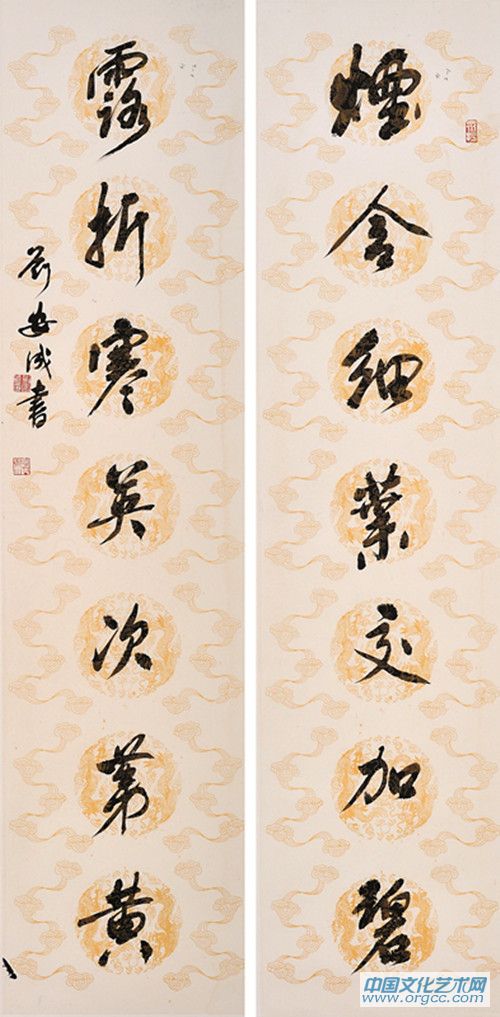 煙含細葉交加碧
露折寒英次第黄
刘安成書
中国文化艺术网
www.orgcc.com